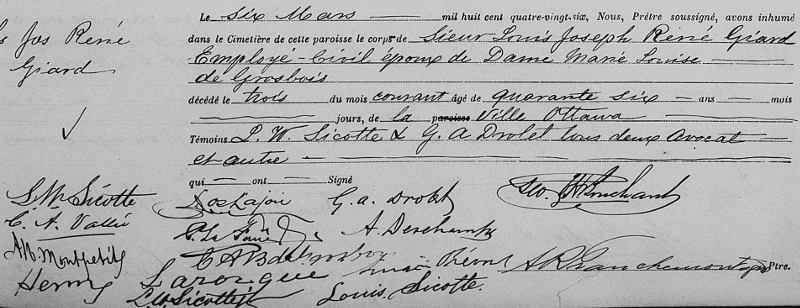 Jos René
Giard
Le six Mars mil huit cent quatre-vingt-six, Nous, Prêtre soussigné, avons inhumé
dans le Cimetière de cette paroisse le corps de Sieur Louis Joseph René Giard
Employé-Civil époux de Dame Marie Louise
de Grosbois
décédé le trois du mois courant âgé de quarante six ans mois
jours, de la paroisse Ville Ottawa
Témoins L. W. Sicotte & G. A Drolet tous deux Avocat
et autre
qui ont Signé
L. W. Sicotte G. A. Drolet
C. A. Vallée A. Deschamps
A. Montpetit
Henry Larocque Prévost Ptre.
Louis Sicotte